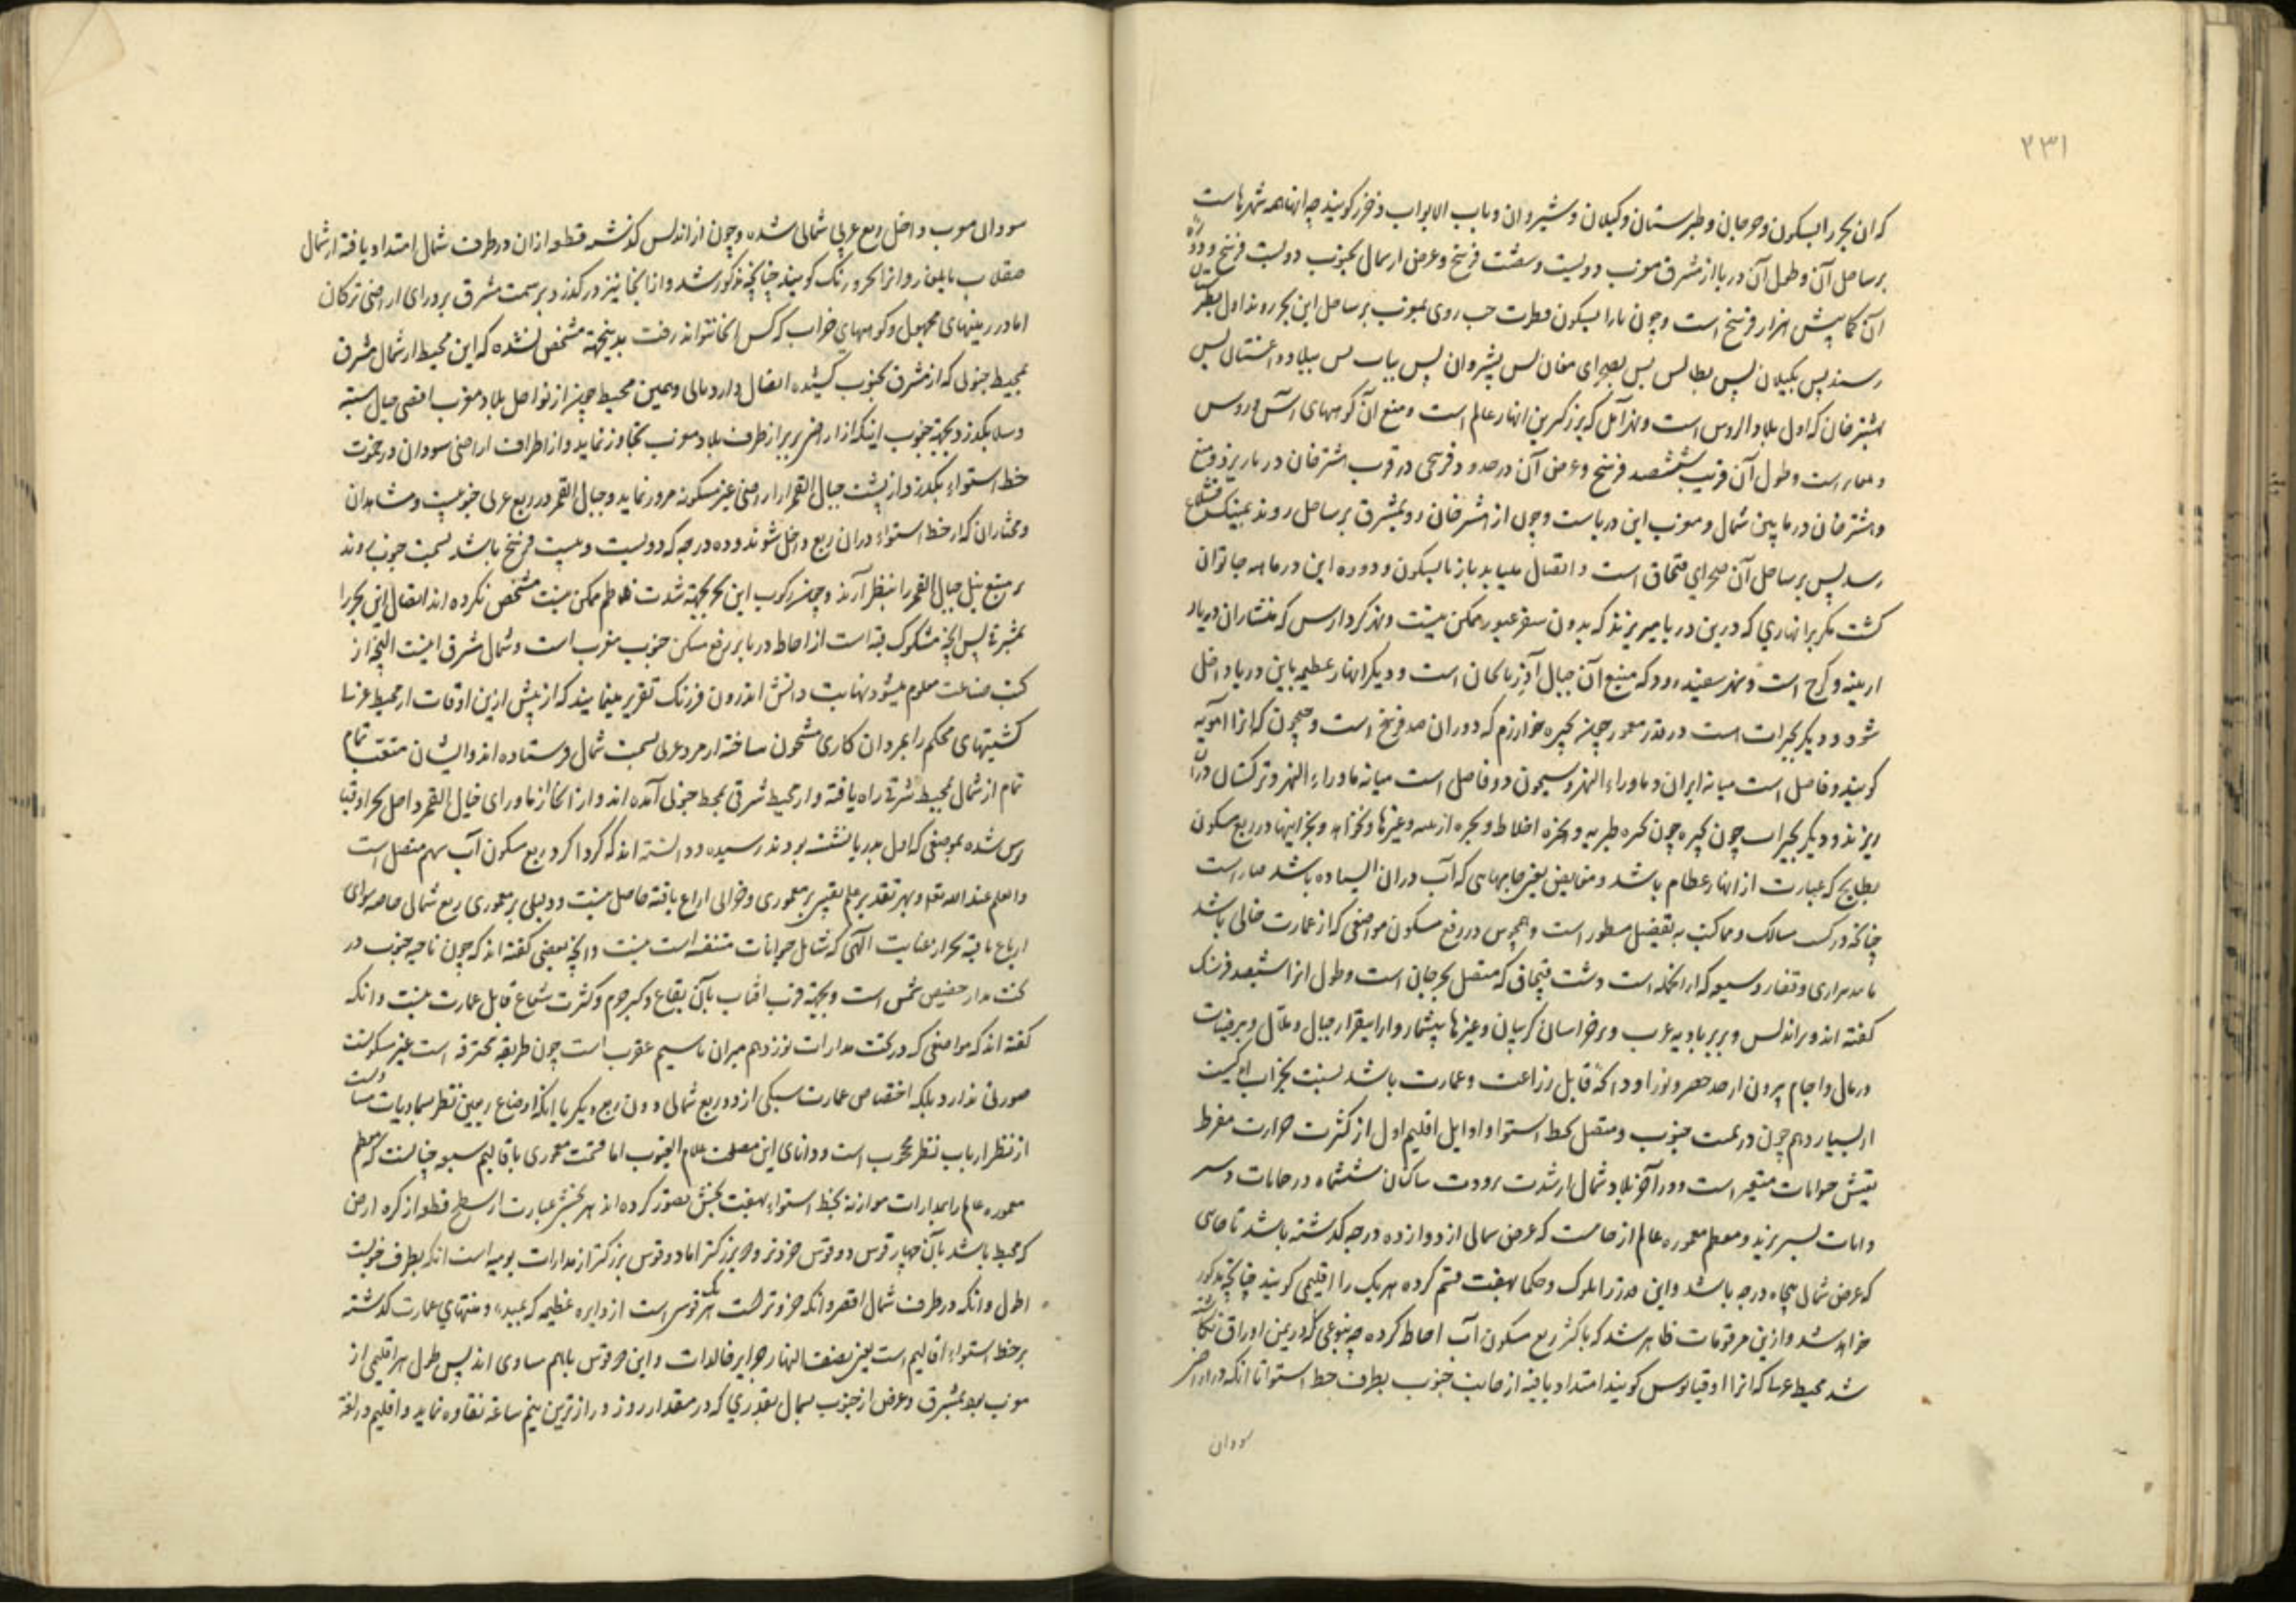 ۲۳۱
که ان بحر را ابسکون و جرجان و طبرستان و کیلان و شیروان و باب الابواب و خزر کویند چه اینها همه شهرهاست
بر ساحل آن و طول آن دریا از مشرق بمغرب دویست و شصت فرسخ و عرض از شمال بجنوب دویست فرسخ و دوره
آن کمابیش هزار فرسخ است و چون از ابسکون روی بمغرب بر ساحل این بحر روند اول بطبرستان
رسند پس بکیلان پس بطالس پس بصحرای مغان پس بشیروان پس بباب پس ببلاد داغستان پس
باشترخان که اول بلاد الروس است و نهر آتل که بزرکترین انهار عالم است و منبع آن کوههای آس و روس
و بلغار است و طول آن قریب ششصد فرسخ و عرض آن در حدود فرسخی در قرب اشترخان در باریزد و منبع
و اشترخان در مابین شمال و مغرب این دریاست و چون از اشترخان رو بمشرق بر ساحل روند بمینکقشلاغ
رسد پس بر ساحل آن صحرای قبچاق است و اتصال مییابد باز بابسکون و دوره این دریا همه جا توان
کشت مکر بر انهاری که درین دریا میریزند که بدون سفر عبور ممکن نیست و نهر کر و ارس که منشاء ان دیار
ارمینه و کرج است و نهر سفیدرود که منبع آن جبال آذربایجان است و دیکر انهار عظیمه باین دریا داخل
شود و دیکر بحیرات است در قدر معمور چون بحیره خوارزم که دوران صد فرسخ است و جیحون که انرا آمویه
کویند و فاصل است میانه ایران و ماوراء النهر و سیحون و فاصل است میانه ماوراء النهر و ترکستان دران
ریزند و دیکر بحیرات چون بحیره طبریه و بحیره اخلاط و بحیره ارمیه و غیرها و بجز اینها در ربع مسکون
بطایح که عبارت از انهار عظام باشد و مغایض یعنی جاهایی که آب دران ایستاده باشد بسیار است
چنانچه در کتب مسالک و ممالک بتفصیل مسطور است و همچنین در ربع مسکون مواضعی که از عمارت خالی باشد
مانند براری و قفار وسیعه که از انجمله است دشت قبچاق که متصل بجرجان است و طول انرا ششصد فرسنک
کفته اند و بر اندلس و بربر بادیه عرب و بر خراسان و کرمان و غیرها بیشمار و ارایضقرار جبال و تلال و برفیات
و رمال و آجام بیرون از حد حصر و نور و آنکه قابل زراعت و عمارت باشد بنسبت بخراب اندکیست
از بسیار و هم چون در سمت جنوب و متصل بخط استوا و اوایل اقلیم اول از کثرت حرارت مفرط
تعیش حیوانات متعسر است و در آخر بلاد شمال از شدت برودت ساکنان ششماه در حمامات و سر
دابات بسر برند و معظم معموره عالم از جاییست که عرض شمالی از دوازده درجه کذشته باشد تا جایی
که عرض شمال پنجاه درجه باشد و این قدر را ملوک و حکما بهفت قسم کرده هر یک را اقلیمی کویند چنانچه مذکور
خواهد شد و ازین مرقومات ظاهر شد که باکثر ربع مسکون آب احاطه کرده چه بنوعی که در یمین اوراق نکاشته
شد محیط غربی که انرا اوقیانوس کویند امتداد یافته از جانب جنوب بطرف خط استوا تا انکه در اراضی
سودان
سودان مغرب داخل ربع غربی شمالی شده و چون از اندلس کذشته قطعه ازان در طرف شمال امتداد یافته از شمال
صقلاب بابلغار و انرا بحر ورنک کویند چنانچه مذکور شد و از انجا نیز در کذرد و بر سمت مشرق بر ورای اراضی ترکان
اما در زمینهای مجهول و کوههای خراب که کس انجا نتواند رفت بدینجهة مشخص نشده که این محیط از شمال مشرق
بمحیط جنوبی که از مشرق بجنوب کشیده اتصال دارد یا نی و همین محیط چون از نواحل بلاد مغرب اقصی جبال سبته
و سلا بکذرد بجهة جنوب اینکه از اراضی بربر از طرف بلاد مغرب تجاوز نماید و از اطراف اراضی سودان در جنوب
خط استواء بکذرد و از پشت جبال القمر از اراضی غیر مسکونه مرور نماید و جبال القمر در ربع غربی جنوبیست و مشاهدان
و مختاران که از خط استواء دران ربع داخل شوند و ده درجه که دویست و بیست فرسخ باشد بسمت جنوب روند
بر منبع نیل جبال القمر را بنظر آرند و چون رکوب این بحر بجهة شدت تلاطم ممکن نیست مشخص نکرده اند اتصال این بحر را
بمشرق پس انچه مشکوک فیه است از احاطه دریا بر ربع مسکون جنوب مغرب است و شمال مشرق اینست انچه از
کتب صناعت معلوم میشود نهایت دانش اندرون فرنک تقریر مینمایند که از پیش ازین اوقات از محیط غربی
کشتیهای محکم را بمردان کاری مشحون ساخته از مرور غربی بسمت شمال فرستاده اند و ایشان متعقب تمام
تمام از شمال محیط شرقی راه یافته و از محیط شرقی بمحیط جنوبی آمده اند و از انجا از ماورای جبال القمر داخل بحر اوقیا
نوس شده بموضعی که اول بدریا نشسته بودند رسیده و دانسته اند که کرداکرد ربع مسکون آب بهم متصل است
والعلم عند الله تعا و بهر تقدیر علم یقینی بر معموری و خرابی ارباع باقیه حاصل نیست و دلیلی بر معموری ربع شمالی خاصه سوای
ارباع باقیه بجز از عنایت الهی که شامل حیوانات متنفسه است نیست و انچه بعضی کفته اند که چون ناحیه جنوب در
تحت مدار حضیض شمس است و بجهة قرب آفتاب بآن بقاع و کبر جرم و کثرت شعاع قابل عمارت نیست و انکه
کفته اند که مواضعی که در تحت مدارات نوزدهم میزان تا سیم عقرب است چون طریقه محترقه است غیر مسکونست
صورتی ندارد بلکه اختصاص عمارت بیکی از دو ربع شمالی دون ربع دیکر با انکه اوضاع ربعین بنظر سماویات متساویست
از نظر ارباب نظر محجوب است و دانای این مصلحت علام الغیوب اما قسمت معموری باقالیم سبعه چنانست که معظم
معموره عالم را بمدارات موازنه بخط استواء بهفت بخش تصور کرده اند هر بخش عبارت از سطح قطعه از کره ارض
که محیط باشد بآن چهار قوس دو قوس خردتر و دو بزرکتر اما دو قوس بزرکتر از مدارات یومیه است انکه بطرف جنوبست
اطول و انکه در طرف شمال اقصر و انکه خردتر است هر یک قوسی است از دایره عظیمه که بمبدء و منتهای عمارت کذشته
بر خط استواء اقالیم است یعنی نصف النهار جزایر خالدات و این دو قوس باهم مساوی اند پس طول هر اقلیمی از
مغرب بود بمشرق و عرض از جنوب بشمال بقدری که در مقدار روز درازترین نیم ساعه تفاوت نماید و اقلیم در لغة